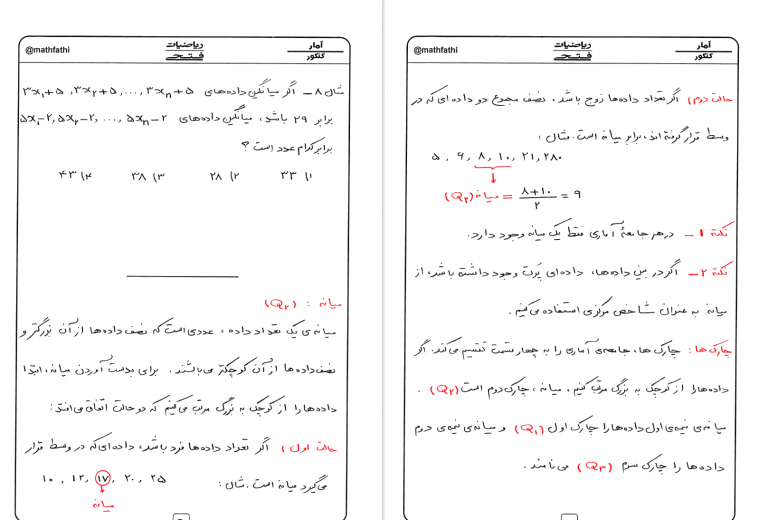 آمار
کنکور
ریاضیات
فتحی
@mathfathi
حالت دوم) اگر تعداد داده‌ها زوج باشد، نصف مجموع دو داده‌ای که در
وسط قرار گرفته‌اند، برابر میانه است. مثال:
۵ , ۶ , ۸ , ۱۰ , ۲۱ , ۲۸۰
میانه (Q۲) = ۸+۱۰/۲ = ۹
نکته ۱ – در هر جامعهٔ آماری فقط یک میانه وجود دارد.
نکته ۲ – اگر در بین داده‌ها، داده‌ای پَرت وجود داشته باشد، از
میانه به عنوان شاخص مرکزی استفاده می‌کنیم.
چارک ها: چارک ها، جامعه‌ی آماری را به چهار قسمت تقسیم می‌کند. اگر
داده‌ها را از کوچک به بزرگ مرتب کنیم، میانه، چارک دوم است (Q۲).
میانه‌ی نیمه‌ی اول داده‌ها را چارک اول (Q۱) و میانه‌ی نیمه‌ی دوم
داده‌ها را چارک سوم (Q۳) می‌نامند.
آمار
کنکور
ریاضیات
فتحی
@mathfathi
مثال ۸ – اگر میانگین داده‌های ۳x۱+۵ , ۳x۲+۵ , ... , ۳xn+۵
برابر ۲۹ باشد، میانگین داده‌های ۵x۱-۲, ۵x۲-۲, ..., ۵xn-۲
برابر کدام عدد است؟
۱) ۳۳ ۲) ۲۸ ۳) ۳۸ ۴) ۴۳
میانه : (Q۲)
میانه‌ی یک تعداد داده، عددی است که نصف داده‌ها از آن بزرگتر و
نصف داده‌ها از آن کوچکتر می‌باشند. برای بدست آوردن میانه، ابتدا
داده‌ها را از کوچک به بزرگ مرتب می‌کنیم که دو حالت اتفاق می‌افتد:
حالت اول) اگر تعداد داده‌ها فرد باشد، داده‌ای که در وسط قرار
می‌گیرد میانه است. مثال:
۱۰ , ۱۲ , ۱۷ , ۲۰ , ۲۵
میانه